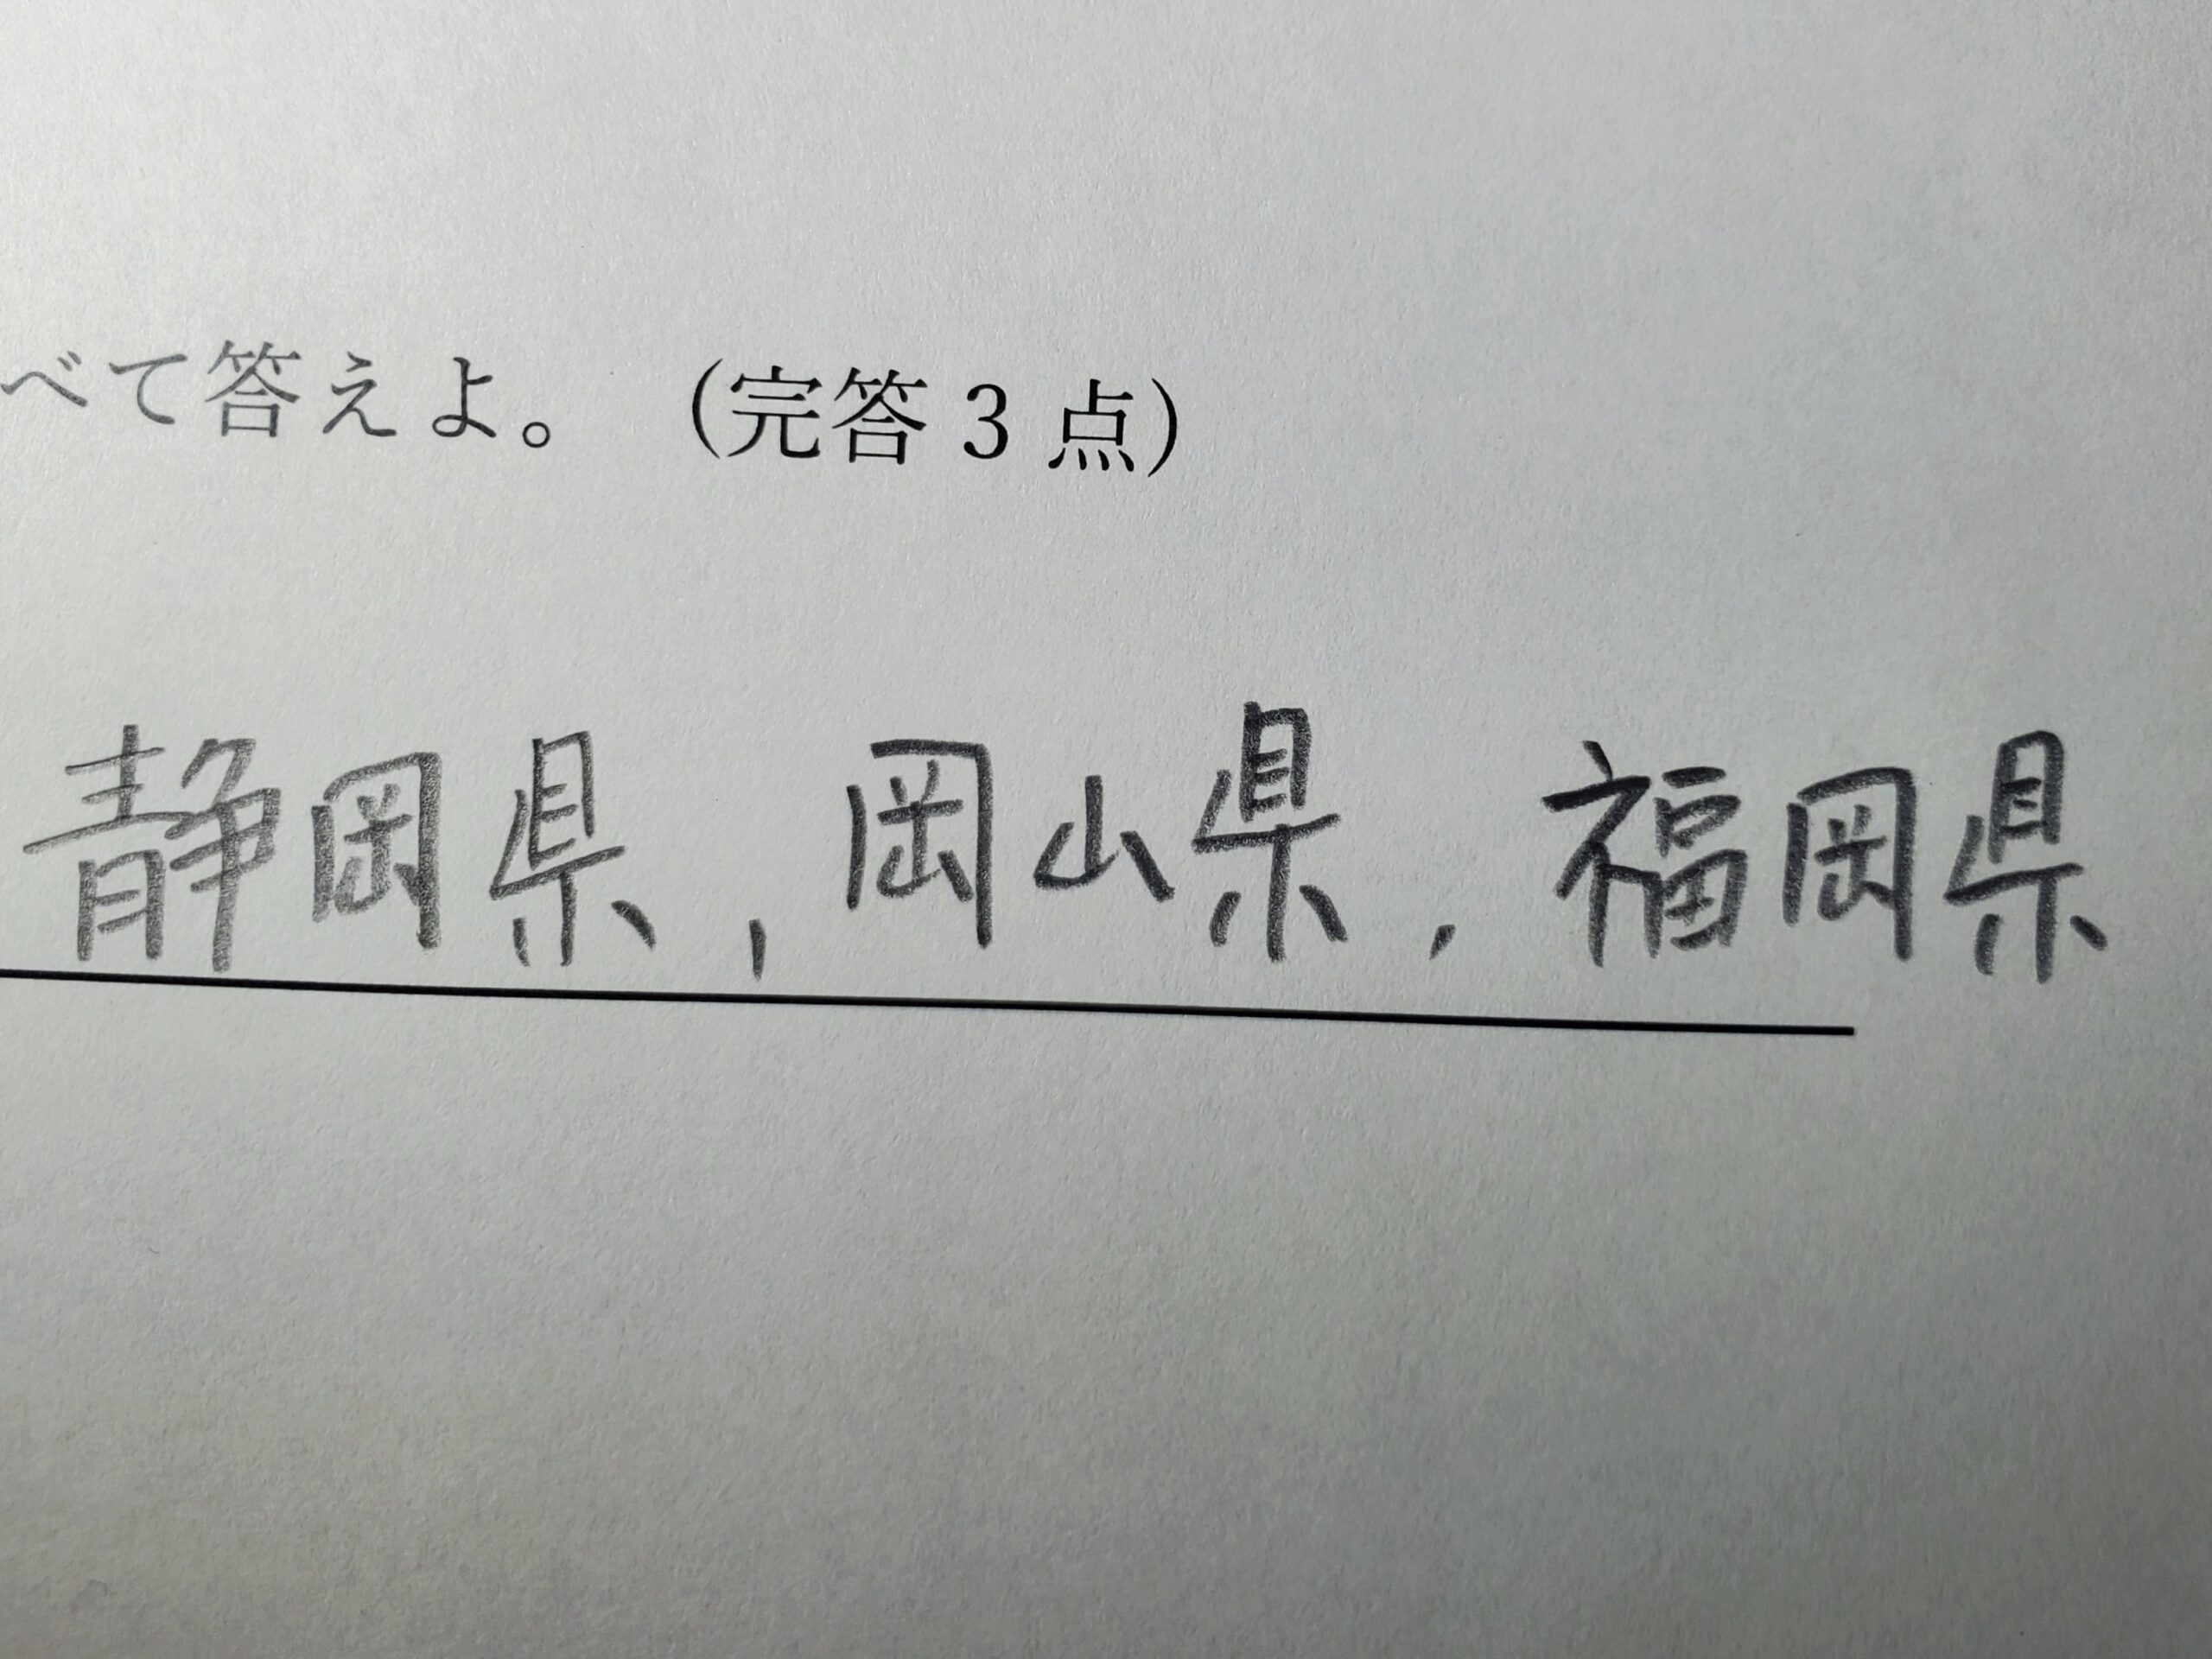 べて答えよ。 (完答 3 点)
静岡県, 岡山県, 福岡県